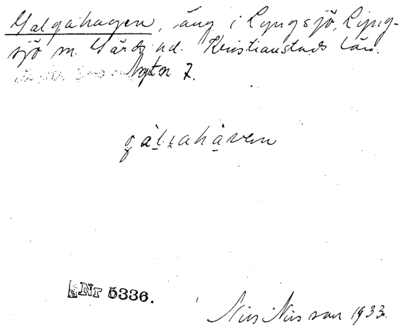 Galgahagen, äng i Lyngsjö, Lyng-
sjö sn. Gärds hd. Kristianstads län.
7.
gàlgahàven
Nr 5336.
Nils Nilsson 1933.